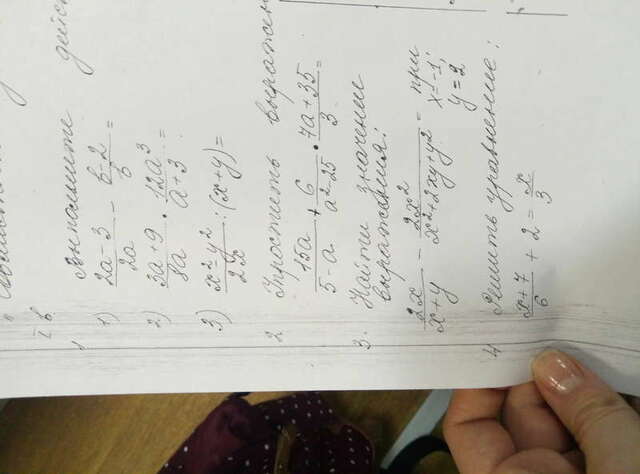 I в.
1 Выполните дейст
1) 2a-3/2a - b-2/b =
2) 3a+9/8a · 12a³/a+3 =
3) x²-y²/2x : (x+y) =
2 Упростить выражен
15a/5-a + 6/a²-25 · 7a+35/3 =
3. Найти значение
выражения:
2x/x+y - 2x²/x²+2xy+y² = при
x=-1;
y=2
4 Решить уравнение:
x+7/6 + 2 = x/3